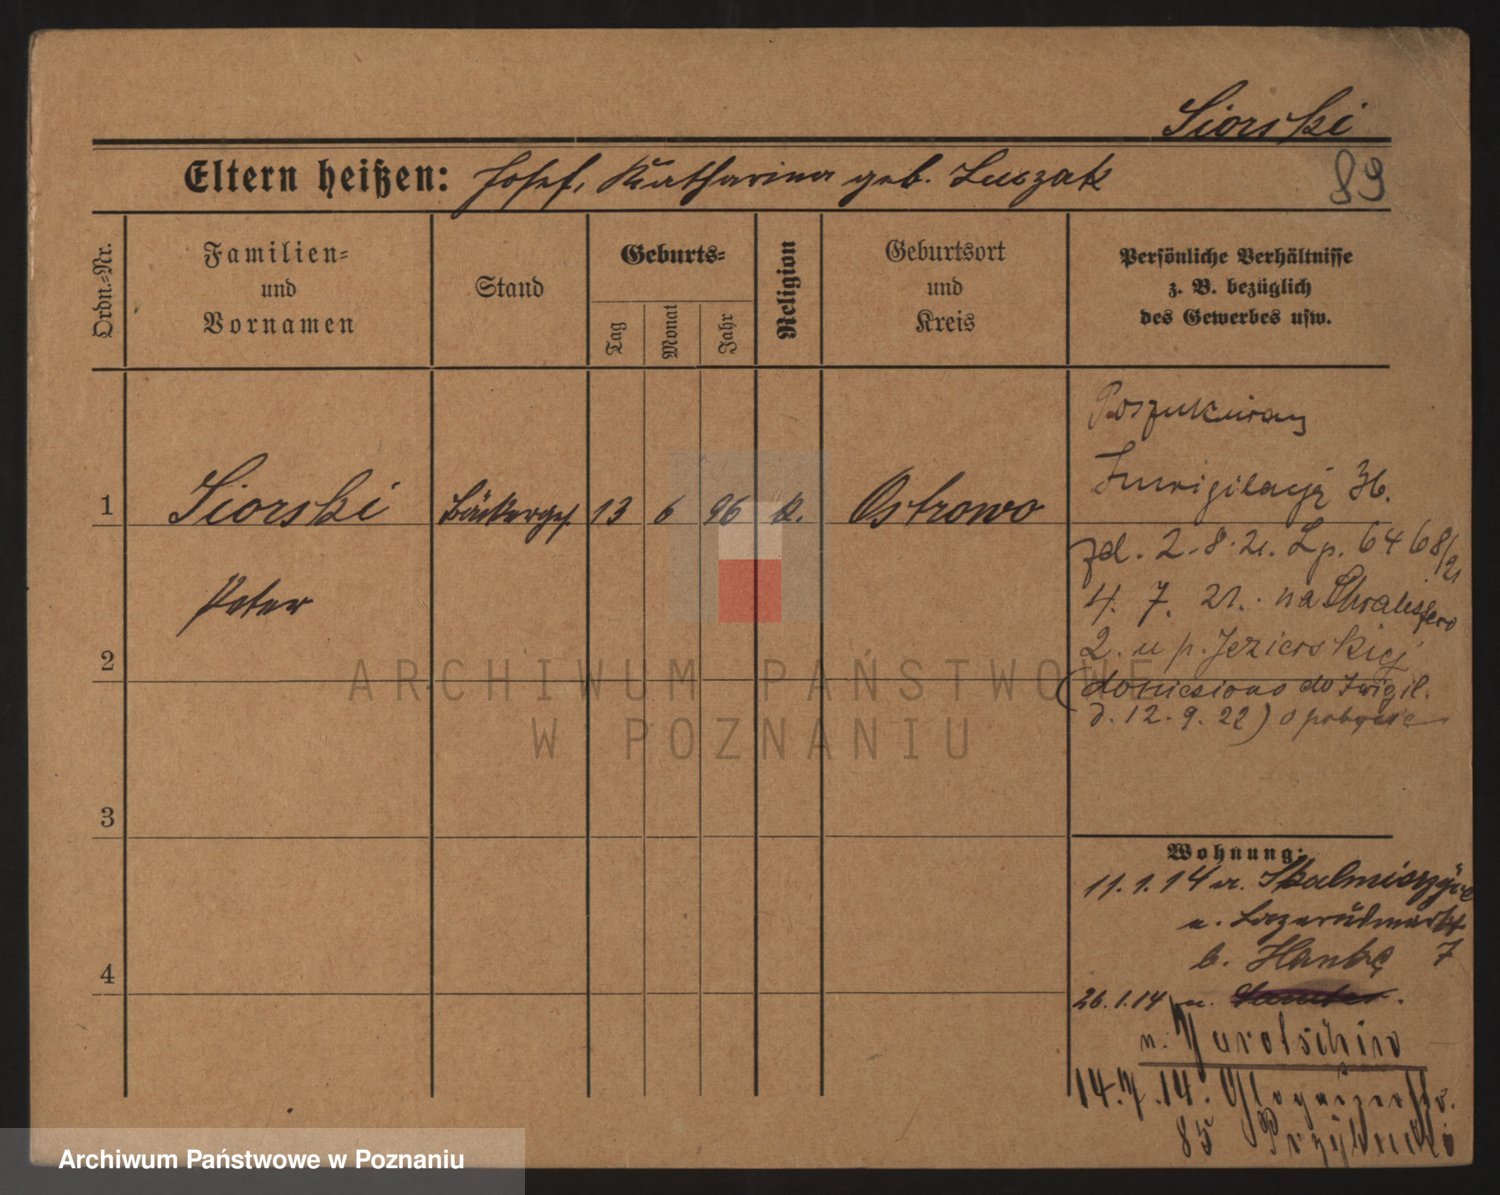 Siorski
89
Eltern heißen: Josef, Katharina geb. Luczak
Ordn.-Nr.
Familien-
und
Vornamen
Stand
Geburts-
Tag
Monat
Jahr
Religion
Geburtsort
und
Kreis
Persönliche Verhältnisse
z. B. bezüglich
des Gewerbes usw.
Poszukiwany
Inwigilacją
1 Siorski Bäckerges. 13 6 96 k. Ostrowo
zd. 2.8.21. Lp. 6468/21
4. 7. 21. na
Peter
2. u p. Jezierskiej
2
(doniesiono do Inwigil.
d. 12. 9. 22) o pobycie
3
Wohnung:
11.1.14 v. Skalmierzyce
n. Lazarusmarkt
b. Hanke 7
4
26.1.14 n.
n. Jarotschin
14.7.14. Glogauerstr.
85 Przybylski
ARCHIWUM PAŃSTWOWE
W POZNANIU
Archiwum Państwowe w Poznaniu